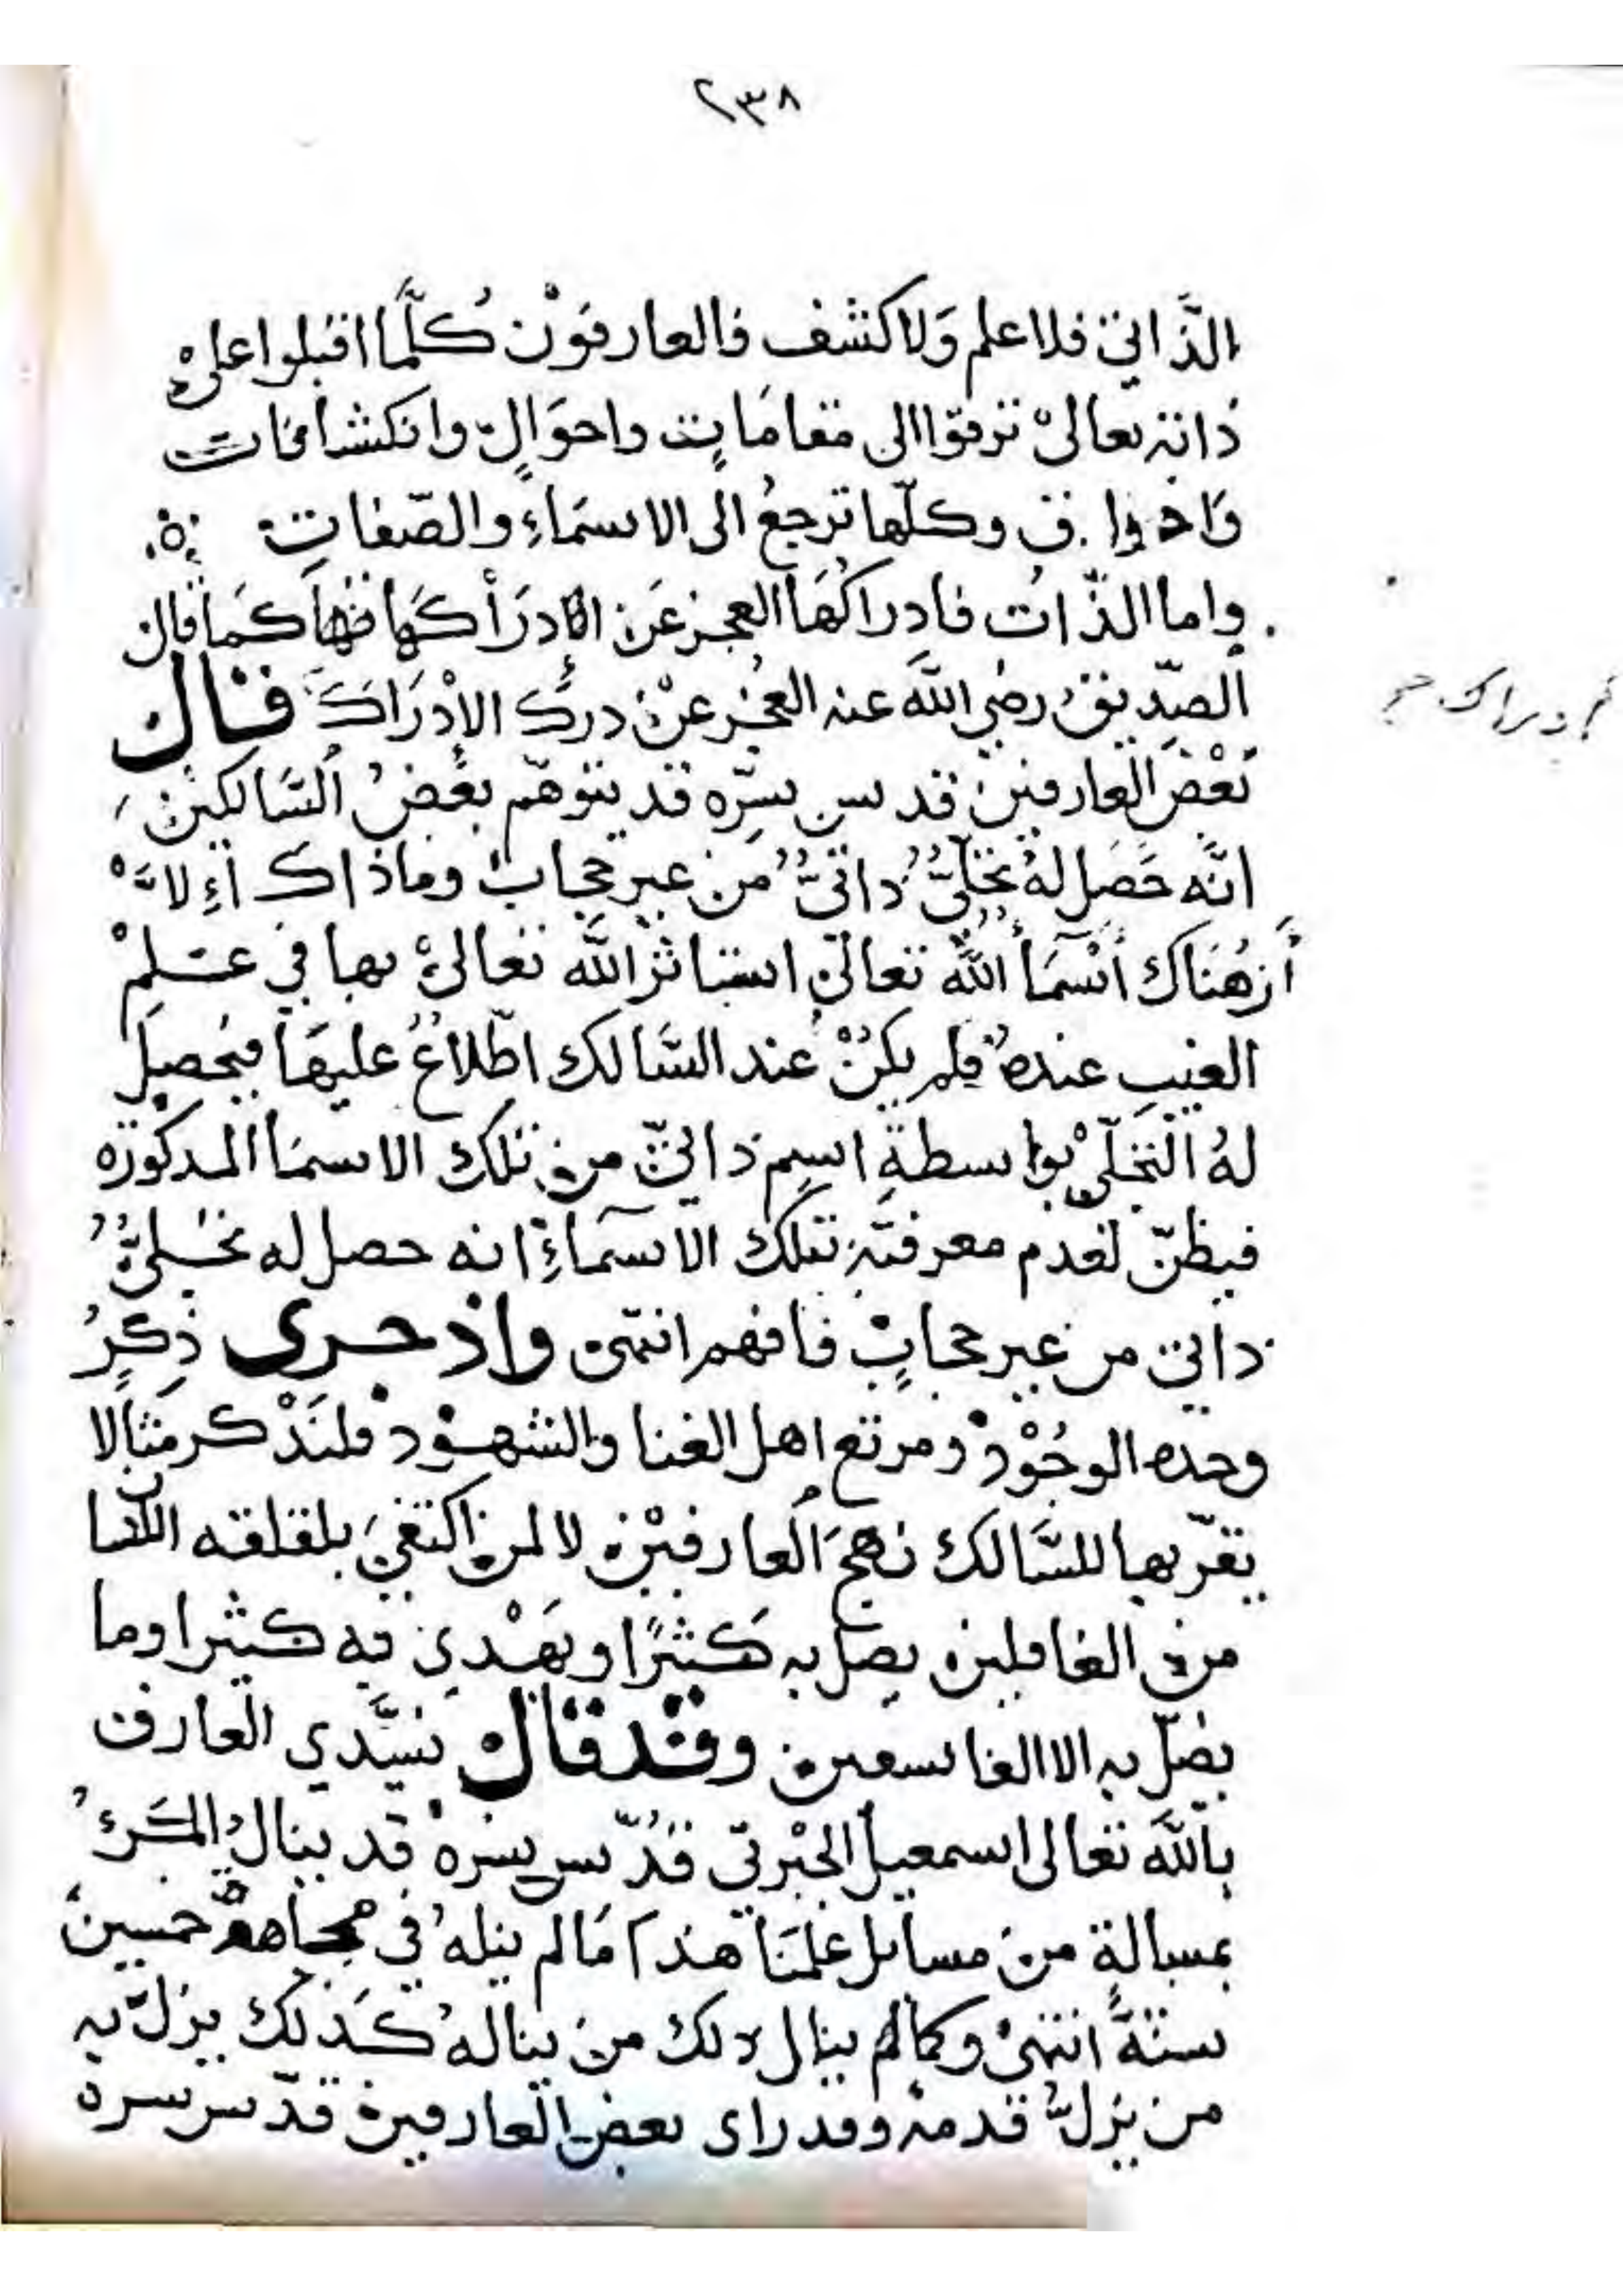 ٢٣٨
الذَّاتي فلا علم وَلا كشف فالعارفوْن كُلَّما اقبلوا على
ذاته تعالىْ ترقوا الى مقامَاتٍ واحوَالٍ وانكشافات
وَاذواق وكلّها ترجعُ الى الاسمَاءِ والصّفاتِ .ه.
واما الذّاتُ فادراكُهَا العجز عَن ادرَاكهَا فيهَا كمَا قال
الصِّديق رضي اللّه عنه العجز عنْ دركِ الإدْرَاك قال
بَعْض العارفين قدس سرّه قد يتوهّم بعْضُ السَّالكين
انَّه حَصَل لهُ تجَلّيٌّ ذاتيٌّ من غير حجابْ وماذاك إلاَّ
أن هُنَاك أسْمَاُ اللّه تعالىْ استاثر اللّه تعالىْ بها في عـلمْ
الغيب عنده فلم يكنْ عند السَّالك اطّلاعٌ عليهَا فيحصل
لهُ التجلّيْ بواسطةِ اسمٍ ذاتيّ من تلك الاسمَا المذكوره
فيظنّ لعدم معرفتهِ بتلك الاسمَاءِ انه حصل له تجـليٌّ
ذاتي من غير حجابٍ فافهم انتهى واذ جرى ذِكرُ
وحده الوجُوْدْ ومرتع اهل الفنا والشهـوْد فلنَذْكر مثالا
يقرّبها للسَّالك نهجَ العارفيْن لا لمن اكتفيَ بلقلقه اللسان
من الغافلين يضل به كَثيرًا ويهْدي به كثيرا وما
يضلّ به الا الفاسقين وقد قال سيَّدي العارف
باللَّه تعالى اسمعيل الجبْرتي قُدّس سره قد ينال المَرءُ
بمسالةٍ من مسايل علمنَا هذا مَا لم ينلهُ في مجاهدة خمسين
سنةً انتهىْ وكما ينال ذلك من ينالهُ كَذلك يزلّ به
من يزلُّ قدمهُ وقد راى بعض العارفين قدّس سره
ادراك صح